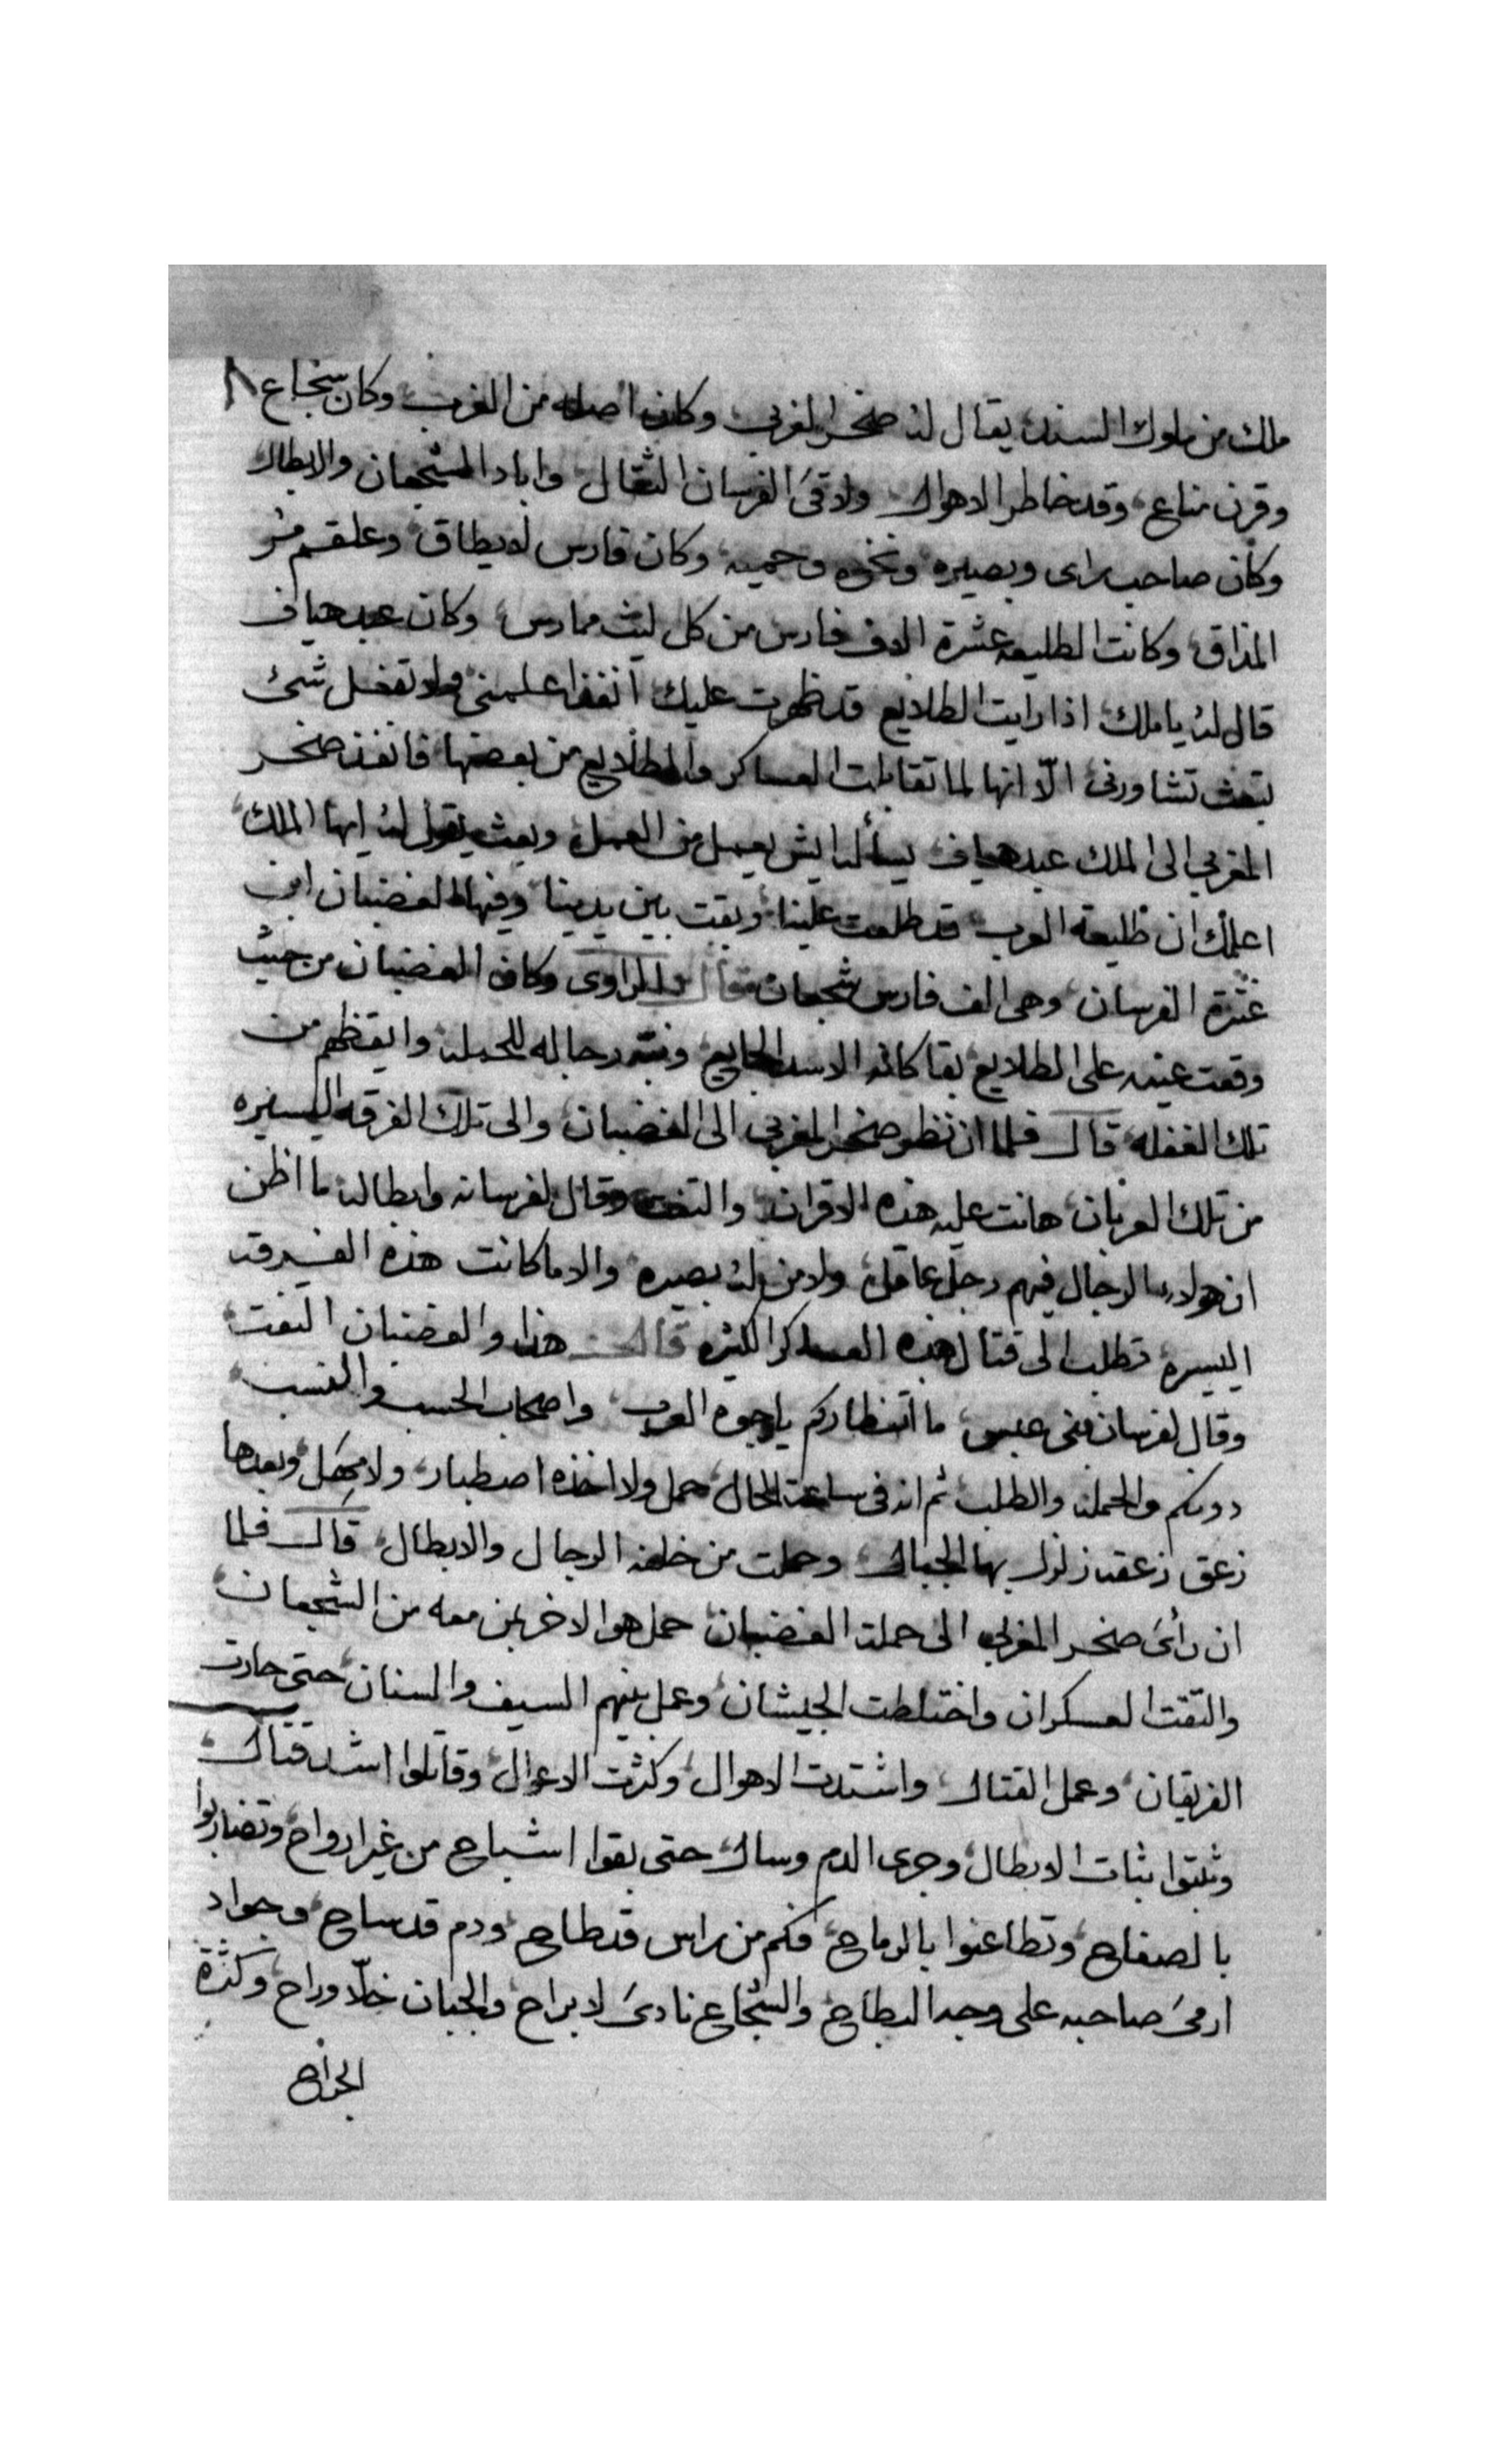 ملك من ملوك السند، يقال له صخر المغربي وكان اصله من الغرب وكان سجاع ٨
وقرن مناع، وقد خاطر الاهوال ولاقى الفرسان الثقال واباد الشجعان والابطال
وكان صاحب راى وبصيره ونخوه وحميه وكان فارس لا يطاق وعلقم مر
المذاق وكانت الطليعه عشرة الاف فارس من كل ليث ممارس، وكان عبد هياف
قال له يا ملك اذا رايت الطلايع قد ظهرت عليك انفذ اعلمنى ولا تفعل شئ
تبعث تشاورنى الّا انها لما تقابلت العساكر والطلايع من بعضها فانفذ صخر
المغربي الى الملك عبد هياف يسأله ايش يعمل من العمل وبعث يقول له ايها الملك
اعلمك ان طليعة العرب قد طلعت علينا وبقت بين يدينا وفيها الغضبان ابن
عنترة الفرسان وهى الف فارس شجعان قال الراوى وكان الغضبان من حيث
وقعت عينه على الطلايع بقا كانه الاسد الجايع ونبه رجاله للحمله وايقظهم من
تلك الغفله قال فلما ان نظر صخر المغربي الى الغضبان والى تلك الفرقه اليسيره
من تلك العربان هانت عليه هذه الاقران والتفت وقال لفرسانه وابطاله ما اظن
ان هولاء الرجال فيهم رجل عاقل ولا من له بصيره والا ما كانت هذه الفرقه
اليسيره تطلب الى قتال هذه العساكر الكثيره قال هذا والغضبان التفت
وقال لفرسان بنى عبس ما انتظاركم يا وجوه العرب واصحاب الحسب والنسب
دونكم والحمله والطلب ثم انه فى ساعة الحال حمل ولا اخذه اصطبار ولا مهل وبعدها
زعق زعقه زلزل بها الجبال وحملت من خلفه الرجال والابطال قال فلما
ان رائ صخر المغربي الى حملة الغضبان حمل هو الاخر بمن معه من الشجعان
والتقت العسكران واختلطت الجيشان وعمل بينهم السيف والسنان حتى حارت
الفريقان وعمل القتال واشتدت الاهوال وكثرت الاعوال وقاتلوا اشد قتال
وثبتوا ثبات الابطال وجرى الدم وسال حتى بقوا اشباح من غير ارواح وتضاربوا
بالصفاح وتطاعنوا بالرماح فكم من راس قد طاح ودم قد ساح وجواد
ارمى صاحبه على وجه البطاح والشجاع نادى لا براح والجبان خلّا وراح وكثرة
الجراح